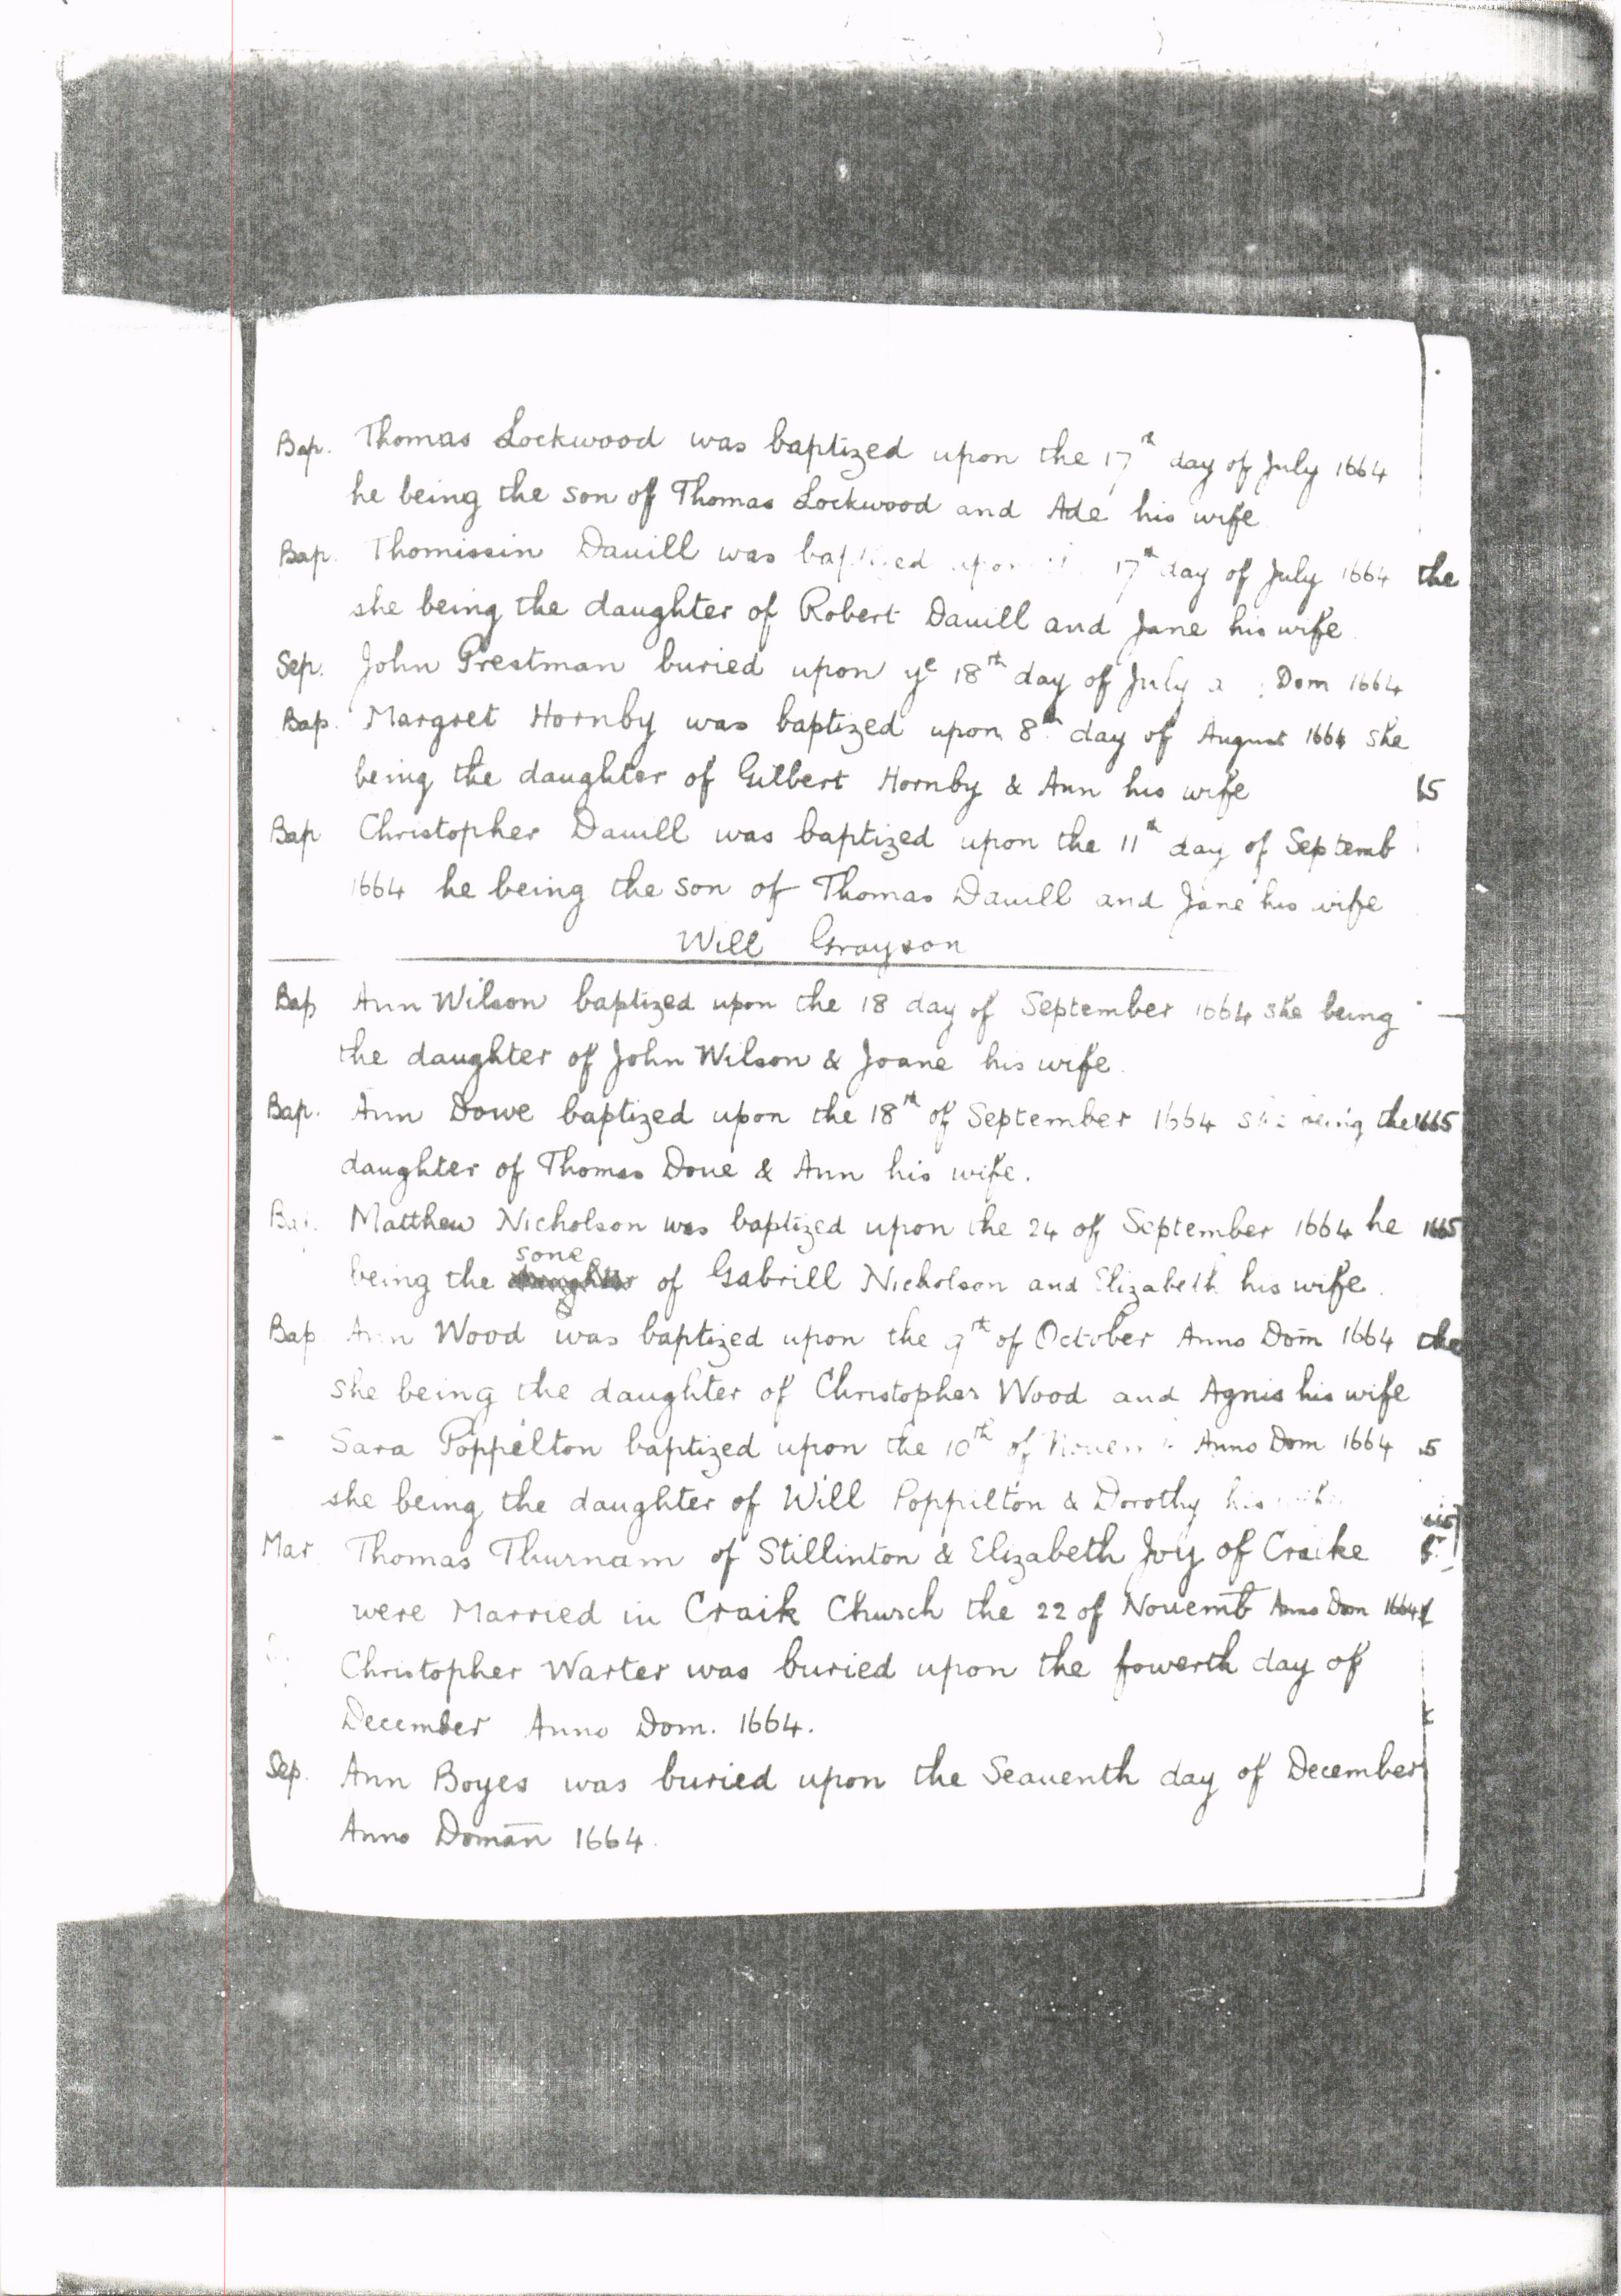 Bap. Thomas Lockwood was baptized upon the 17th day of July 1664
he being the son of Thomas Lockwood and Ade his wife
Bap. Thomissin Dauill was baptized upon 17th day of July 1664 the
she being the daughter of Robert Dauill and Jane his wife
Sep. John Prestman buried upon ye 18th day of July Dom 1664
Bap. Margret Hornby was baptized upon 8th day of August 1664 she
being the daughter of Gilbert Hornby & Ann his wife 5
Bap Christopher Dauill was baptized upon the 11th day of Septemb
1664 he being the son of Thomas Dauill and Jane his wife
Will Grayson
Bap Ann Wilson baptized upon the 18 day of September 1664 she being
the daughter of John Wilson & Joane his wife.
Bap. Ann Dowe baptized upon the 18th of September 1664 she being the 1665
daughter of Thomas Doue & Ann his wife.
Matthew Nicholson was baptized upon the 24 of September 1664 he 1665
sone
being the daughter of Gabrill Nicholson and Elizabeth his wife.
Bap Ann Wood was baptized upon the 9th of October Anno Dom̄ 1664 the
she being the daughter of Christopher Wood and Agnis his wife
- Sara Poppelton baptized upon the 10th of Anno Dom 1664 5
she being the daughter of Will Poppilton & Dorothy his
Mar Thomas Thurnam of Stillinton & Elizabeth Joy of Craike
were Married in Craik Church the 22 of Nouemb̄ Anno Dom 1664
Christopher Warter was buried upon the fowerth day of
December Anno Dom. 1664.
Sep. Ann Boyes was buried upon the Seauenth day of December
Anno Domān 1664.